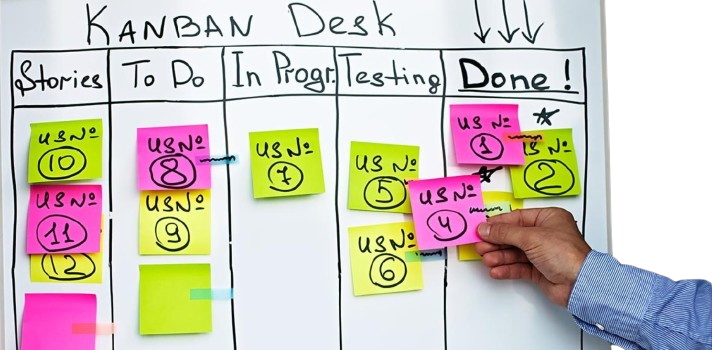 KANBAN Desk
Stories
To Do
In Progr.
Testing
Done!
US Nº
10
US Nº
11
12
US Nº
8
US Nº
9
US Nº
7
US Nº
5
US Nº
6
US Nº
4
US Nº
1
US Nº
2